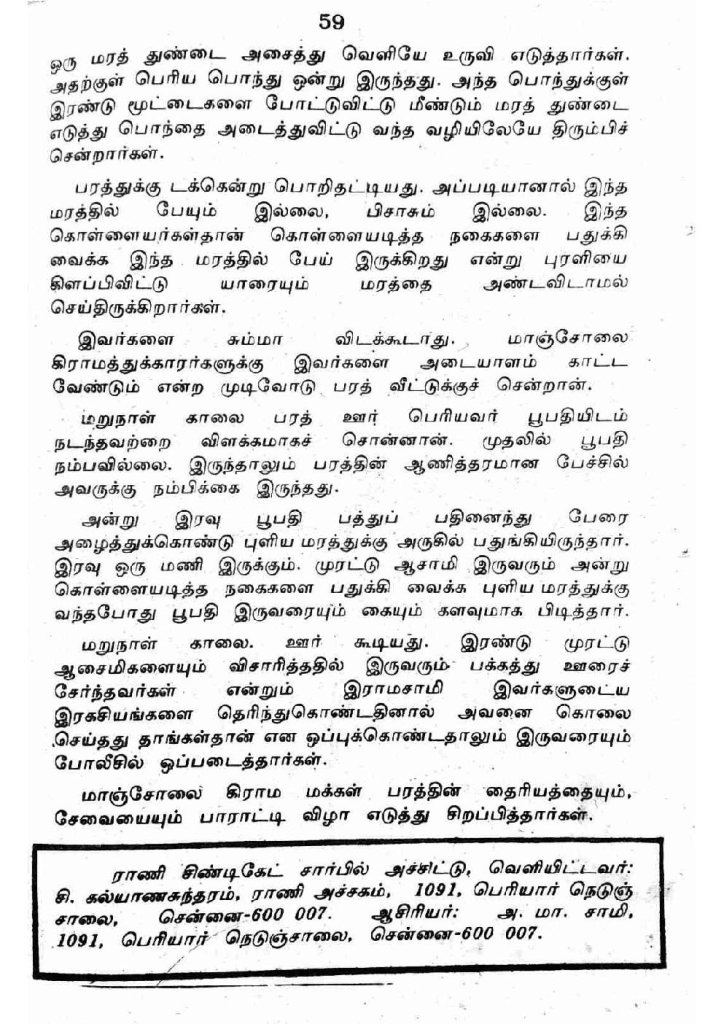 59
ஒரு மரத் துண்டை அசைத்து வெளியே உருவி எடுத்தார்கள்.
அதற்குள் பெரிய பொந்து ஒன்று இருந்தது. அந்த பொந்துக்குள்
இரண்டு மூட்டைகளை போட்டுவிட்டு மீண்டும் மரத் துண்டை
எடுத்து பொந்தை அடைத்துவிட்டு வந்த வழியிலேயே திரும்பிச்
சென்றார்கள்.
பரத்துக்கு டக்கென்று பொறிதட்டியது. அப்படியானால் இந்த
மரத்தில் பேயும் இல்லை, பிசாசும் இல்லை. இந்த
கொள்ளையர்கள்தான் கொள்ளையடித்த நகைகளை பதுக்கி
வைக்க இந்த மரத்தில் பேய் இருக்கிறது என்று புரளியை
கிளப்பிவிட்டு யாரையும் மரத்தை அண்டவிடாமல்
செய்திருக்கிறார்கள்.
இவர்களை சும்மா விடக்கூடாது. மாஞ்சோலை
கிராமத்துக்காரர்களுக்கு இவர்களை அடையாளம் காட்ட
வேண்டும் என்ற முடிவோடு பரத் வீட்டுக்குச் சென்றான்.
மறுநாள் காலை பரத் ஊர் பெரியவர் பூபதியிடம்
நடந்தவற்றை விளக்கமாகச் சொன்னான். முதலில் பூபதி
நம்பவில்லை. இருந்தாலும் பரத்தின் ஆணித்தரமான பேச்சில்
அவருக்கு நம்பிக்கை இருந்தது.
அன்று இரவு பூபதி பத்துப் பதினைந்து பேரை
அழைத்துக்கொண்டு புளிய மரத்துக்கு அருகில் பதுங்கியிருந்தார்.
இரவு ஒரு மணி இருக்கும். முரட்டு ஆசாமி இருவரும் அன்று
கொள்ளையடித்த நகைகளை பதுக்கி வைக்க புளிய மரத்துக்கு
வந்தபோது பூபதி இருவரையும் கையும் களவுமாக பிடித்தார்.
மறுநாள் காலை. ஊர் கூடியது. இரண்டு முரட்டு
ஆசைமிகளையும் விசாரித்ததில் இருவரும் பக்கத்து ஊரைச்
சேர்ந்தவர்கள் என்றும் இராமசாமி இவர்களுடைய
இரகசியங்களை தெரிந்துகொண்டதினால் அவனை கொலை
செய்தது தாங்கள்தான் என ஒப்புக்கொண்டதாலும் இருவரையும்
போலீசில் ஒப்படைத்தார்கள்.
மாஞ்சோலை கிராம மக்கள் பரத்தின் தைரியத்தையும்,
சேவையையும் பாராட்டி விழா எடுத்து சிறப்பித்தார்கள்.
ராணி சிண்டிகேட் சார்பில் அச்சிட்டு, வெளியிட்டவர்:
சி. கல்யாணசுந்தரம், ராணி அச்சகம், 1091, பெரியார் நெடுஞ்
சாலை, சென்னை-600 007. ஆசிரியர்: அ. மா. சாமி,
1091, பெரியார் நெடுஞ்சாலை, சென்னை-600 007.